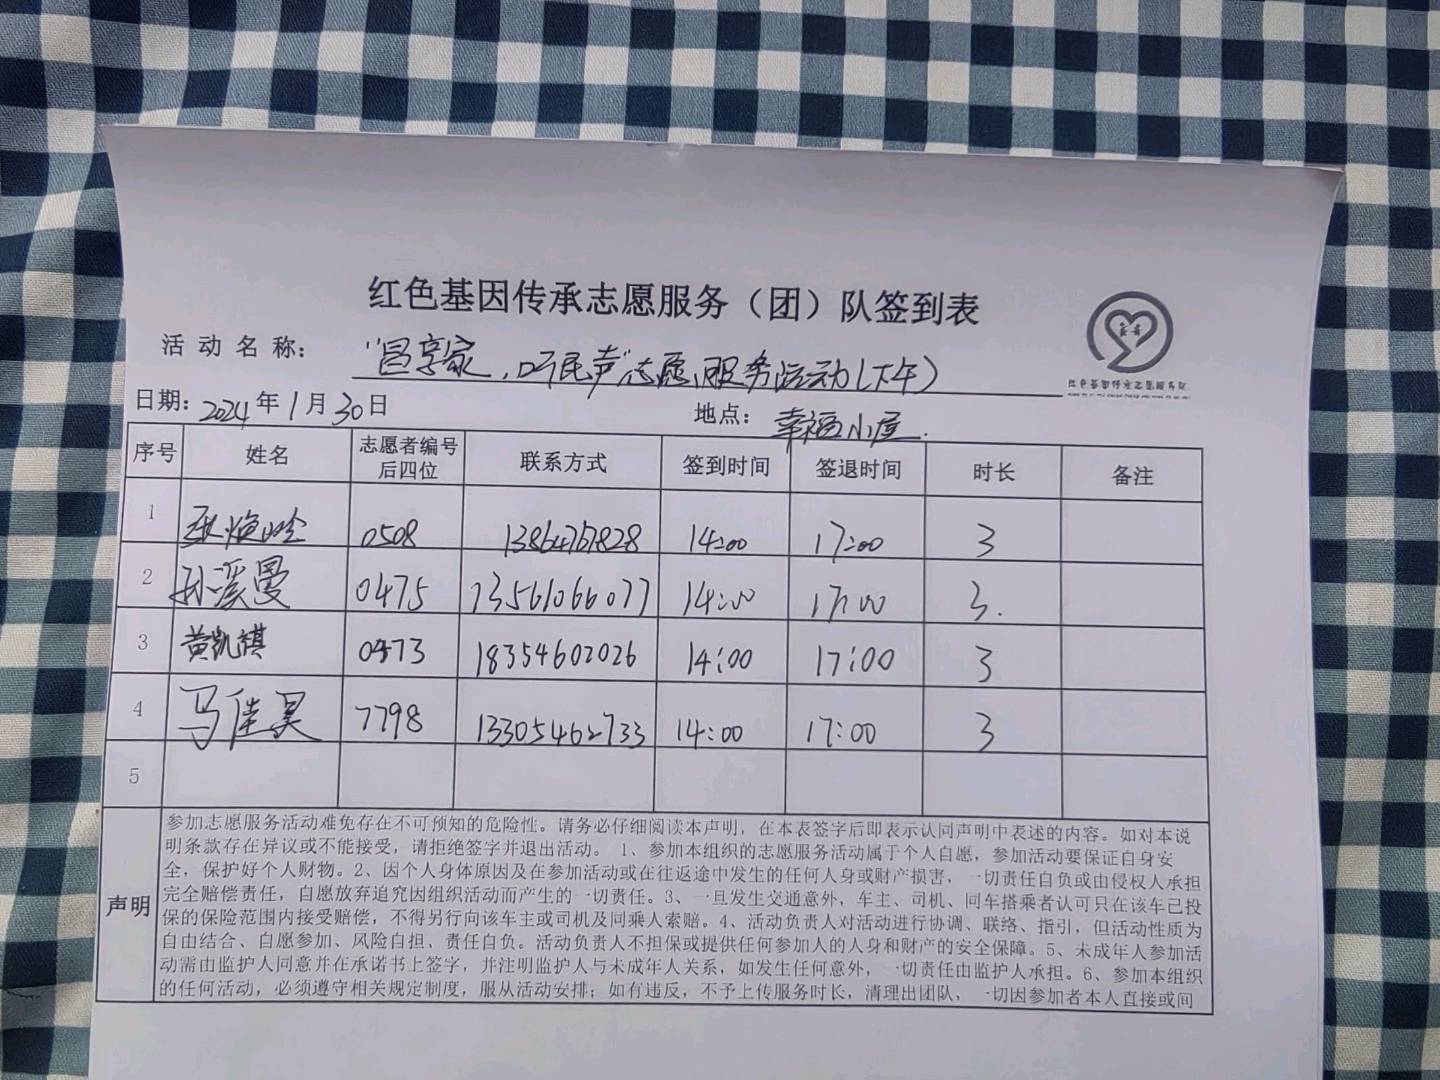 红色基因传承志愿服务（团）队签到表
活动名称： "昌享家,听民声"志愿服务活动(下午)
红色基因传承志愿服务队
日期: 2024年1月30日 地点: 幸福小屋.
序号 姓名 志愿者编号后四位 联系方式 签到时间 签退时间 时长 备注
1 0508 13864767828 14:00 17:00 3
2 孙溪曼 0475 13561066077 14:00 17:00 3.
3 黄凯祺 0473 18354602026 14:00 17:00 3
4 马佳昊 7798 13305462733 14:00 17:00 3
5
声明
参加志愿服务活动难免存在不可预知的危险性。请务必仔细阅读本声明，在本表签字后即表示认同声明中表述的内容。如对本说
明条款存在异议或不能接受，请拒绝签字并退出活动。 1、参加本组织的志愿服务活动属于个人自愿，参加活动要保证自身安
全，保护好个人财物。2、因个人身体原因及在参加活动或在往返途中发生的任何人身或财产损害，一切责任自负或由侵权人承担
完全赔偿责任，自愿放弃追究因组织活动而产生的一切责任。3、一旦发生交通意外，车主、司机、同车搭乘者认可只在该车已投
保的保险范围内接受赔偿，不得另行向该车主或司机及同乘人索赔。4、活动负责人对活动进行协调、联络、指引，但活动性质为
自由结合、自愿参加、风险自担，责任自负。活动负责人不担保或提供任何参加人的人身和财产的安全保障。5、未成年人参加活
动需由监护人同意并在承诺书上签字，并注明监护人与未成年人关系，如发生任何意外，一切责任由监护人承担。6、参加本组织
的任何活动，必须遵守相关规定制度，服从活动安排；如有违反，不予上传服务时长，清理出团队，一切因参加者本人直接或间